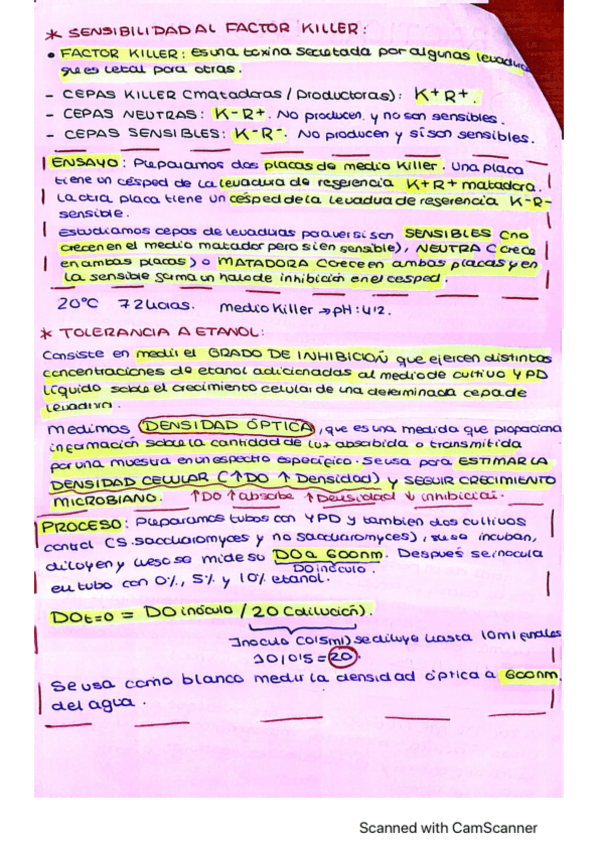 * SENSIBILIDAD AL FACTOR KILLER:
• FACTOR KILLER: Es una toxina secretada por algunas levadura
que es letal para otras.
- CEPAS KILLER (matadoras / Productoras): K+R+.
- CEPAS NEUTRAS: K-R+. No producen y no son sensibles.
- CEPAS SENSIBLES: K-R-. No producen y sí son sensibles.
ENSAYO: Preparamos dos placas de medio Killer. Una placa
tiene un césped de la levadura de referencia K+R+ matadora.
La otra placa tiene un césped de la levadura de referencia K-R-
sensible.
Estudiamos cepas de levaduras para ver si son SENSIBLES (no
crecen en el medio matador pero si en sensible), NEUTRA (crece
en ambas placas) o MATADORA (crece en ambas placas y en
la sensible forma un halo de inhibición en el césped.
20°C 72 horas. Medio Killer → pH: 4'2.
* TOLERANCIA A ETANOL:
Consiste en medir el GRADO DE INHIBICIÓN que ejercen distintas
concentraciones de etanol adicionadas al medio de cultivo YPD
líquido sobre el crecimiento celular de una determinada cepa de
levadura.
Medimos DENSIDAD ÓPTICA, que es una medida que propociona
información sobre la cantidad de luz absorbida o transmitida
por una muestra en un espectro específico. Se usa para ESTIMAR LA
DENSIDAD CELULAR (↑DO ↑Densidad) y SEGUIR CRECIMIENTO
MICROBIANO. ↑DO ↑absorbe ↑Densidad ↓inhibición.
PROCESO: Preparamos tubos con YPD y también dos cultivos
control (S. saccharomyces y no saccharomyces), se incuban,
diluyen y luego se mide su DO a 600nm. Después se inocula
DO inóculo.
en tubo con 0%, 5% y 10% etanol.
DOt=0 = DO inóculo / 20 (dilución).
Inoculo (0'5ml) se diluye hasta 10ml finales
10/0'5 = 20.
Se usa como blanco medir la densidad óptica a 600nm
del agua.
Scanned with CamScanner